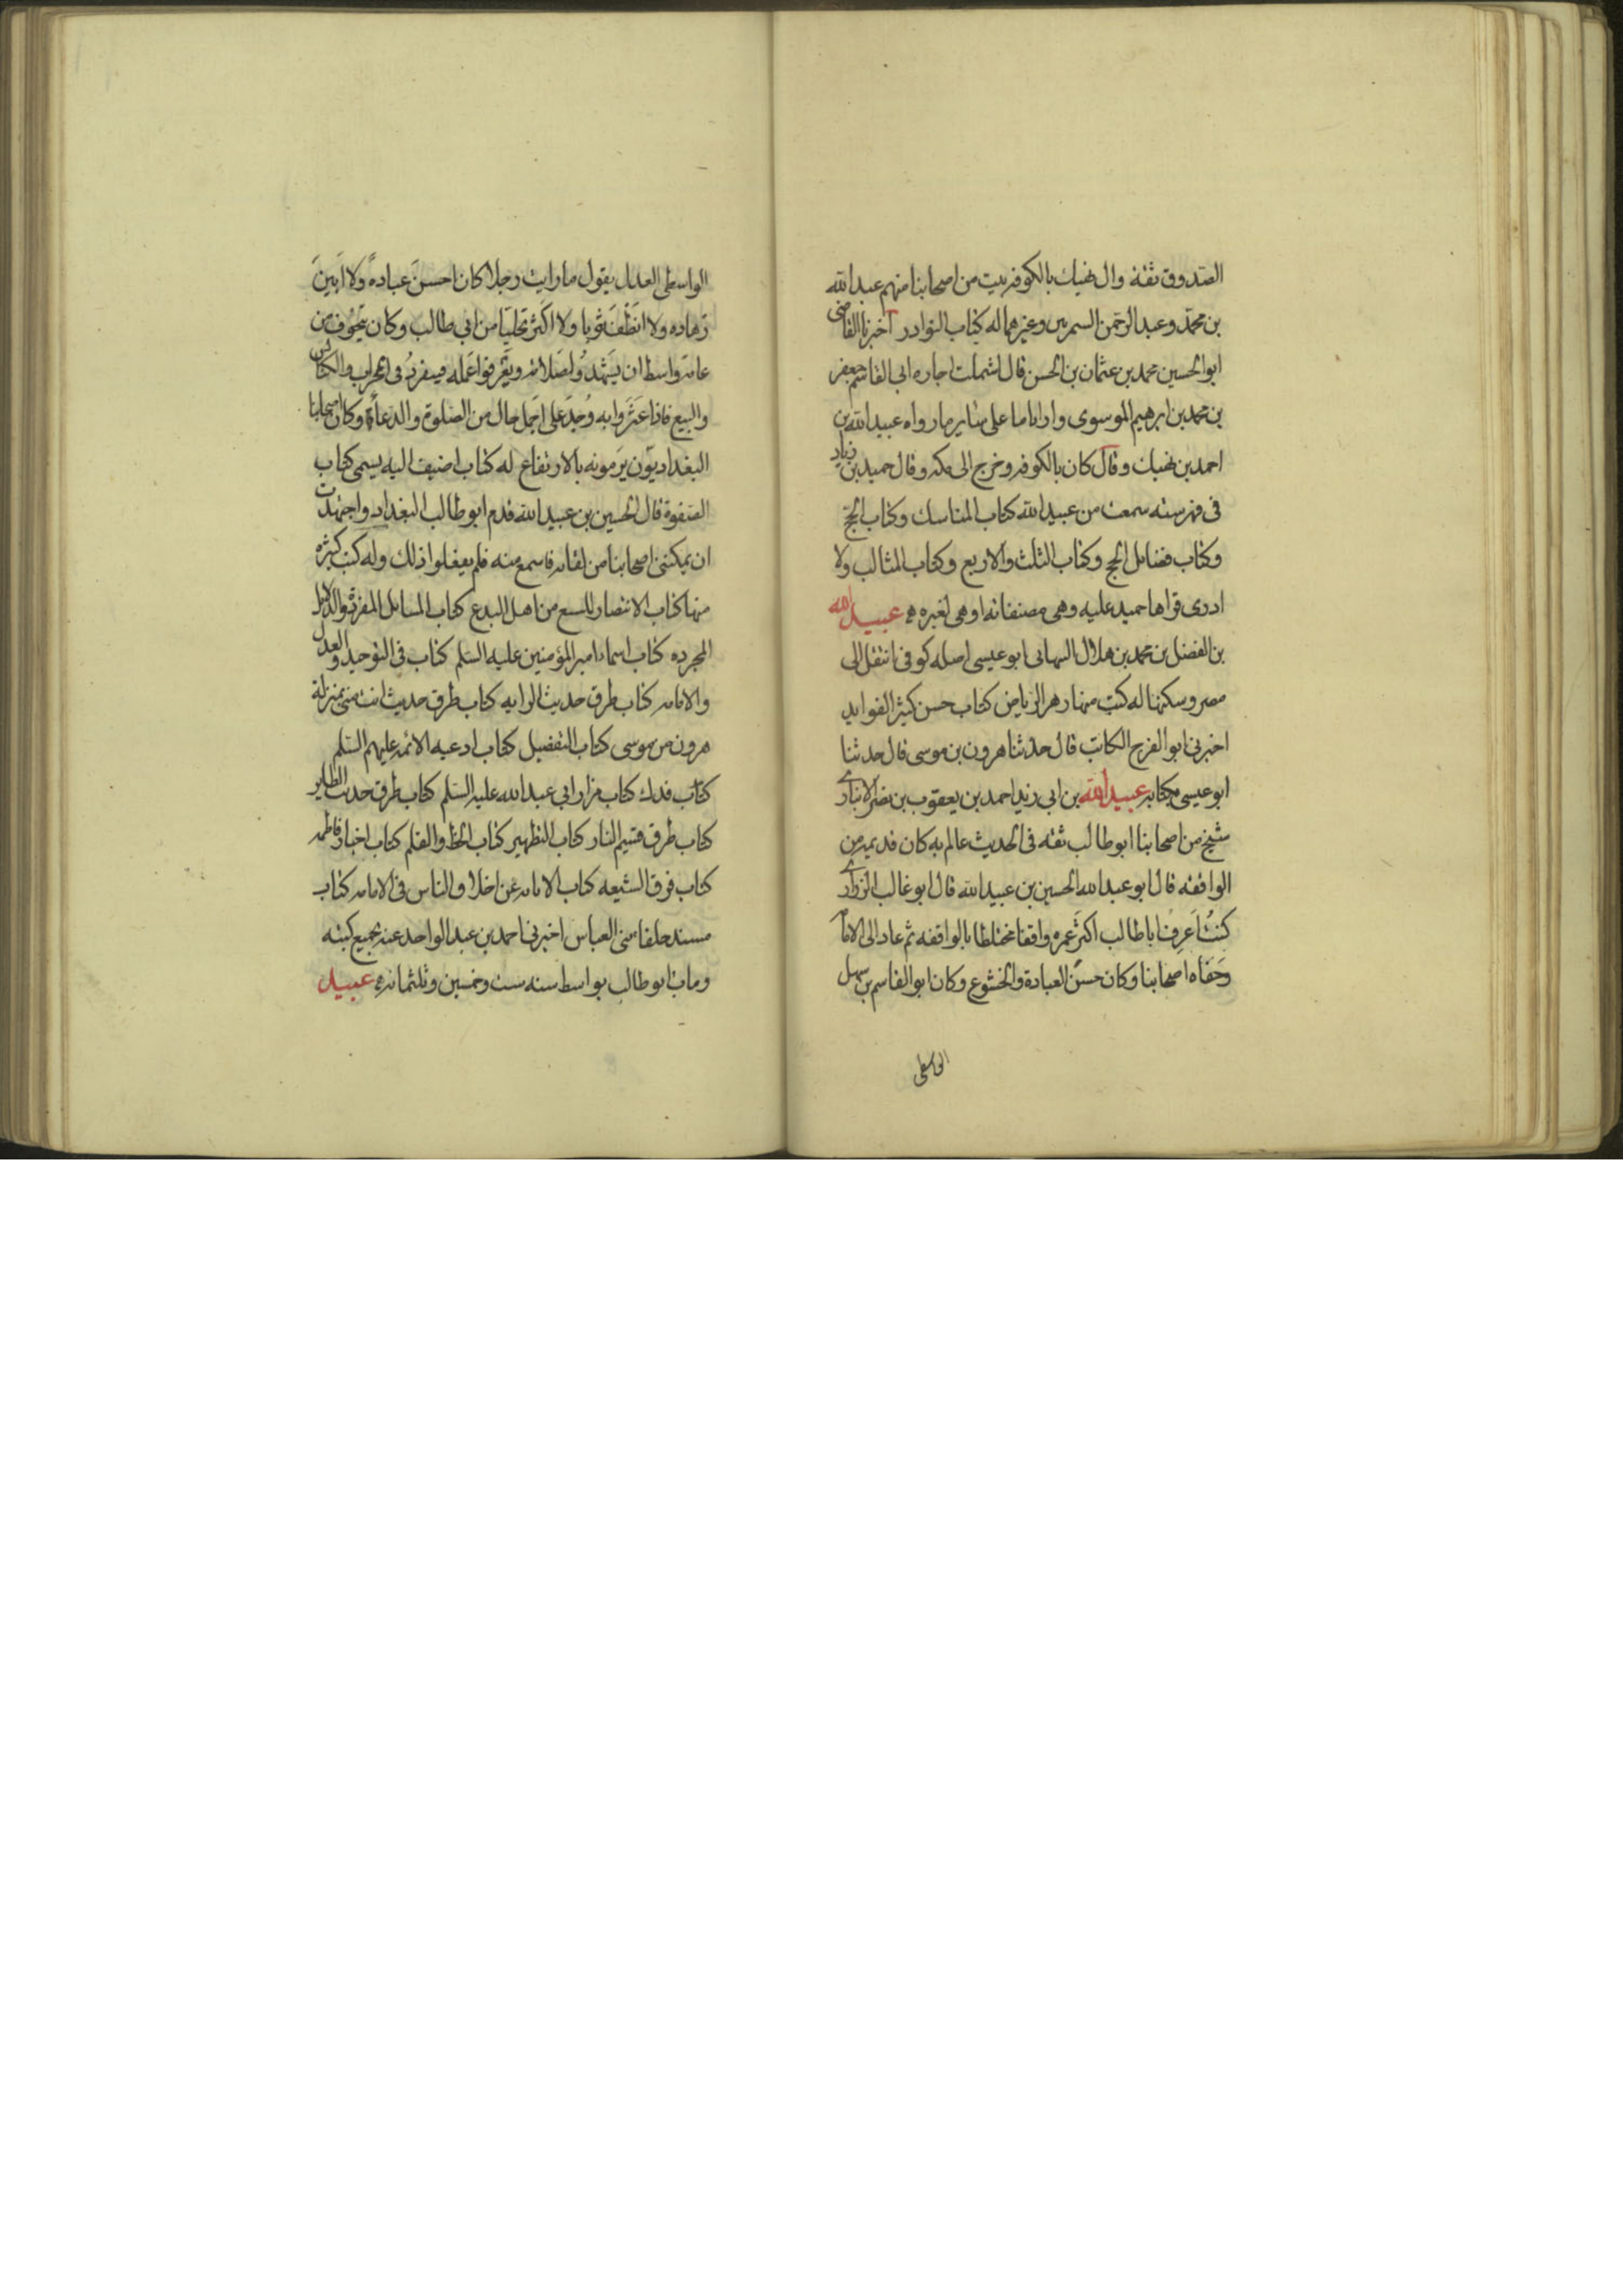 الصدوق ثقة وال نهيك بالكوفه بيت من اصحابنا منهم عبد الله
بن محمد وعبد الرحمن السمريين وغيرهما له كتاب النوادر اخبرنا القاضى
ابو الحسين محمد بن عثمان بن الحسن قال اشتملت اجازه ابى القاسم جعفر
بن محمد بن ابرهيم الموسوى واراناها على ساير مارواه عبيد الله بن
احمد بن نهيك وقال كان بالكوفه وخرج الى مكه وقال حميد بن زياد
فى فهرسته سمعت من عبيد الله كتاب المناسك وكتاب الحج
وكتاب فضايل الحج وكتاب الثلث والاربع وكتاب المثالب ولا
ادرى قراها حميد عليه وهى مصنفاته او هى لغيره عبيد الله
بن الفضل بن محمد بن هلال النبهانى ابو عيسى اصله كوفى انتقل الى
مصر وسكنها له كتب منها زهر الرياض كتاب حسن كثير الفوايد
اخبرنى ابو الفرج الكاتب قال حدثنا هرون بن موسى قال حدثنا
ابو عيسى بكتابه عبيد الله بن ابى زيد احمد بن يعقوب بن نصر الانبارى
شيخ من اصحابنا ابو طالب ثقه فى الحديث عالم به كان قديمه من
الواقفه قال ابو عبد الله الحسين بن عبيد الله قال ابو غالب الزرارى
كنتُ اَعرِفُ ابا طالب اكثَر عمره واقفا مختلطا بالواقفه ثم عاد الى الامامه
وجَفَاه اصحابنا وكان حسنَ العبادة والخشوع وكان ابو القاسم بن سهل
الواسطى
الواسطى العدل يقول ما رايت رجلا كان احسنَ عبادهً ولا اَبينَ
زهاده ولا انظَفَ ثوبا ولا اكثر تحليا من ابى طالب وكان يتخوف من
عامه واسط ان يشهدوا صلاته ويعرفوا عمله فينفردُ فى الخراب والكنايس
والبيع فاذا عَثَروا به وُجِدَ على اجمل حال من الصلوة والدعاء وكان اصحابنا
البغداديون يَرمونه بالارتفاع له كتاب اضيف اليه يسمى كتاب
الصفوة قال الحسين بن عبيد الله قدم ابو طالب البغداد واجتهدت
ان يمكننى اصحابنا من لقائه فاسمع منه فلم يفعلوا ذلك وله كتب كثيره
منها كتاب الانتصار للسبع من اهل البدع كتاب المسايل المفردة والدلايل
المجرده كتاب اسماء امير المؤمنين عليه السلم كتاب فى التوحيد والعدل
والامامه كتاب طرق حديث الرايه كتاب طرق حديث انت منى بمنزلة
هرون من موسى كتاب التفضيل كتاب ادعيه الائمه عليهم السلم
كتاب فدك كتاب مزار ابى عبد الله عليه السلم كتاب طرق حديث الطاير
كتاب طرق قسيم النار كتاب التطهير كتاب الخط والقلم كتاب اخبار فاطمه
كتاب فرق الشيعه كتاب الابانه عن اختلاف الناس فى الامامه كتاب
مسند خلفا بنى العباس اخبرنى احمد بن عبد الواحد عنه بجميع كتبه
ومات ابو طالب بواسط سنه ست وخمسين وثلثمائه عبيد